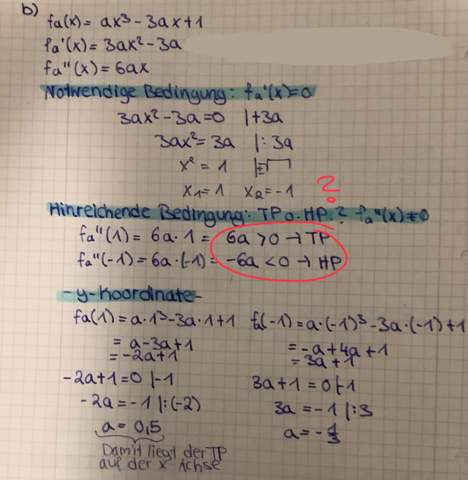 b) fa(x) = ax³ - 3ax + 1
fa'(x) = 3ax² - 3a
fa''(x) = 6ax
Notwendige Bedingung: fa'(x) = 0
3ax² - 3a = 0 | +3a
3ax² = 3a | : 3a
x² = 1 | ±√
x₁ = 1 x₂ = -1
?
Hinreichende Bedingung: TP o. HP.? fa''(x) ≠ 0
fa''(1) = 6a · 1 = 6a > 0 → TP
fa''(-1) = 6a · (-1) = -6a < 0 → HP
- y-Koordinate -
fa(1) = a · 1³ - 3a · 1 + 1
= a - 3a + 1
= -2a + 1
-2a + 1 = 0 | -1
-2a = -1 | : (-2)
a = 0,5
Damit liegt der TP
auf der x-Achse
fa(-1) = a · (-1)³ - 3a · (-1) + 1
= -a + 4a + 1
= 3a + 1
3a + 1 = 0 | -1
3a = -1 | : 3
a = -1/3